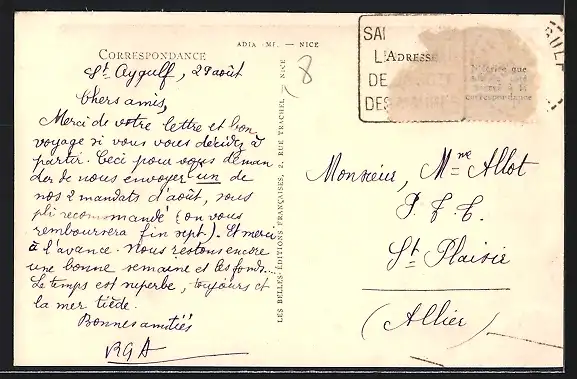 ADIA -MI. — NICE
CORRESPONDANCE
St Aygulf, 29 août
Chers amis,
Merci de votre lettre et bon
voyage si vous vous décidez à
partir. Ceci pour vous deman
der de nous envoyer un de
nos 2 mandats d'août, sous
pli recommandé (on vous
remboursera fin sept.). Et merci
à l'avance. Nous restons encore
une bonne semaine et les fonds...
Le temps est superbe, toujours et
la mer tiède.
Bonnes amitiés
RGA
LES BELLES ÉDITIONS FRANÇAISES, 2, RUE TRACHEL — NICE
8
SAI
L'
DE
DES
ADRESSE
que
correspondance
Monsieur, Mme Allot
P. T. T.
St Plaisir
(Allier)